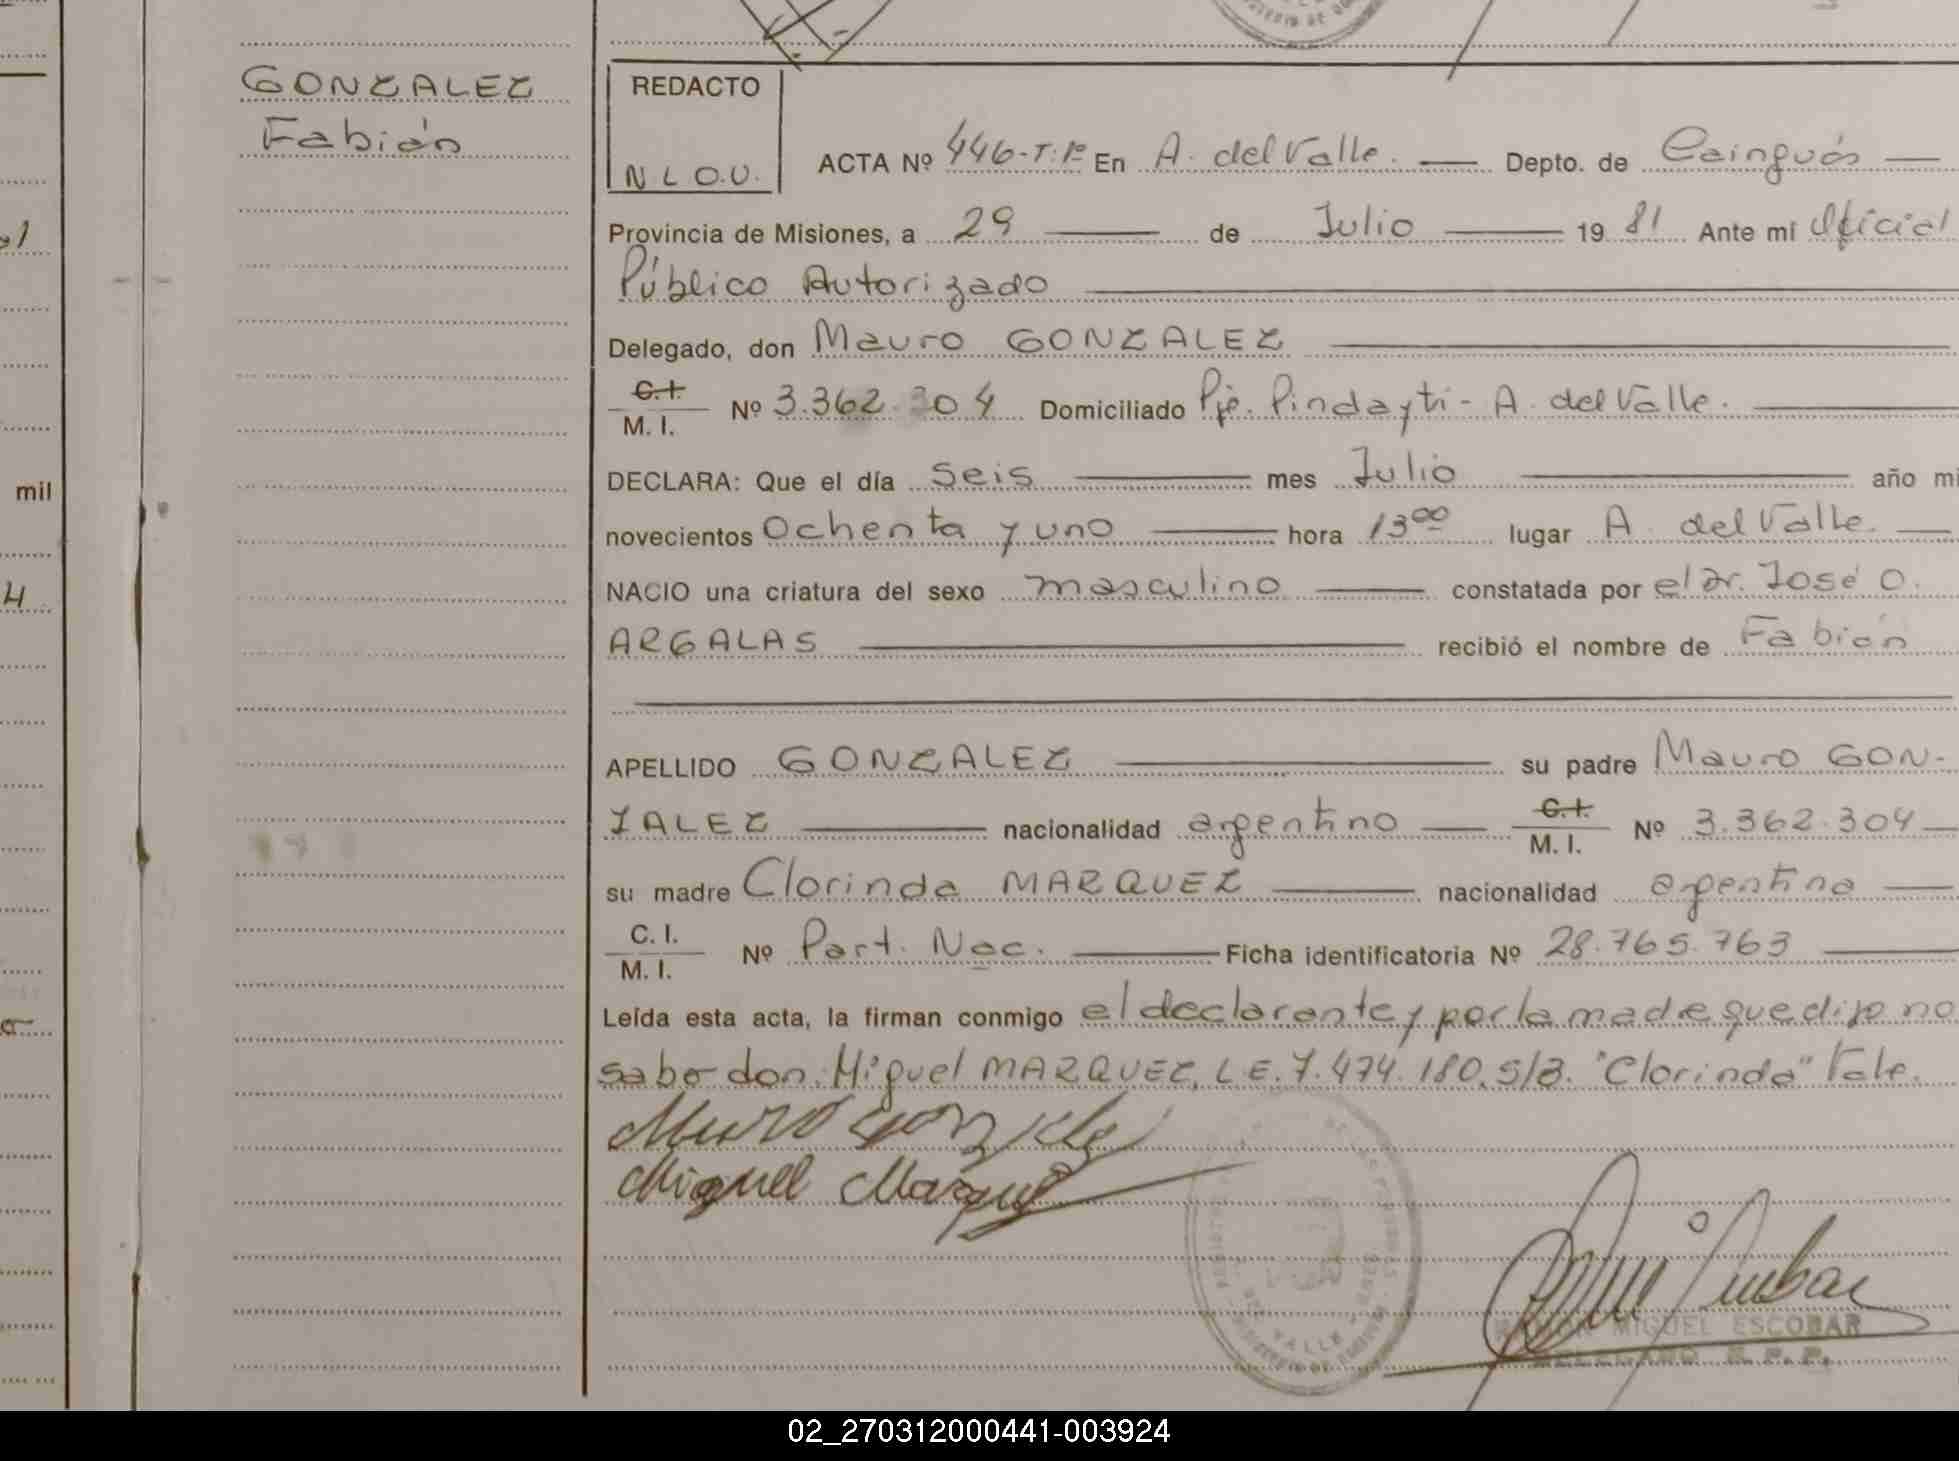 GONZALEZ
Fabián
REDACTO
N L O.U.
ACTA Nº 446-T:1º En A. del Valle. Depto. de Cainguás
Provincia de Misiones, a 29 de Julio 1981 Ante mi Oficial
Público Autorizado
Delegado, don Mauro GONZALEZ
C.I. / M. I. Nº 3.362.304 Domiciliado Pje. Pindaytí - A. del Valle.
DECLARA: Que el día seis mes Julio año mi
novecientos Ochenta y uno hora 13⁰⁰ lugar A. del Valle.
NACIO una criatura del sexo masculino constatada por el Dr. José O.
ARGALAS recibió el nombre de Fabián
APELLIDO GONZALEZ su padre Mauro GON-
ZALEZ nacionalidad argentino C.I. / M. I. Nº 3.362.304
su madre Clorinda MARQUEZ nacionalidad argentina
C. I. / M. I. Nº Part. Nac. Ficha identificatoria Nº 28.765.763
Leída esta acta, la firman conmigo el declarante y por la madre que dijo no
saber don. Miguel MARQUEZ, L E. 7.474.180. S/B. "Clorinda" Vale.
Mauro Gonzalez
Miguel Marquez
MIGUEL ESCOBAR
mil
02_270312000441-003924